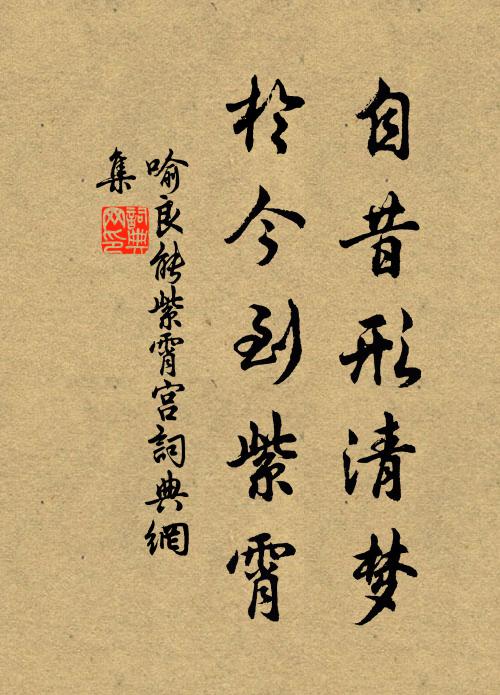 自昔形清梦
於今到紫霄
喻良能紫霄宫詞典網
集
詞典網印